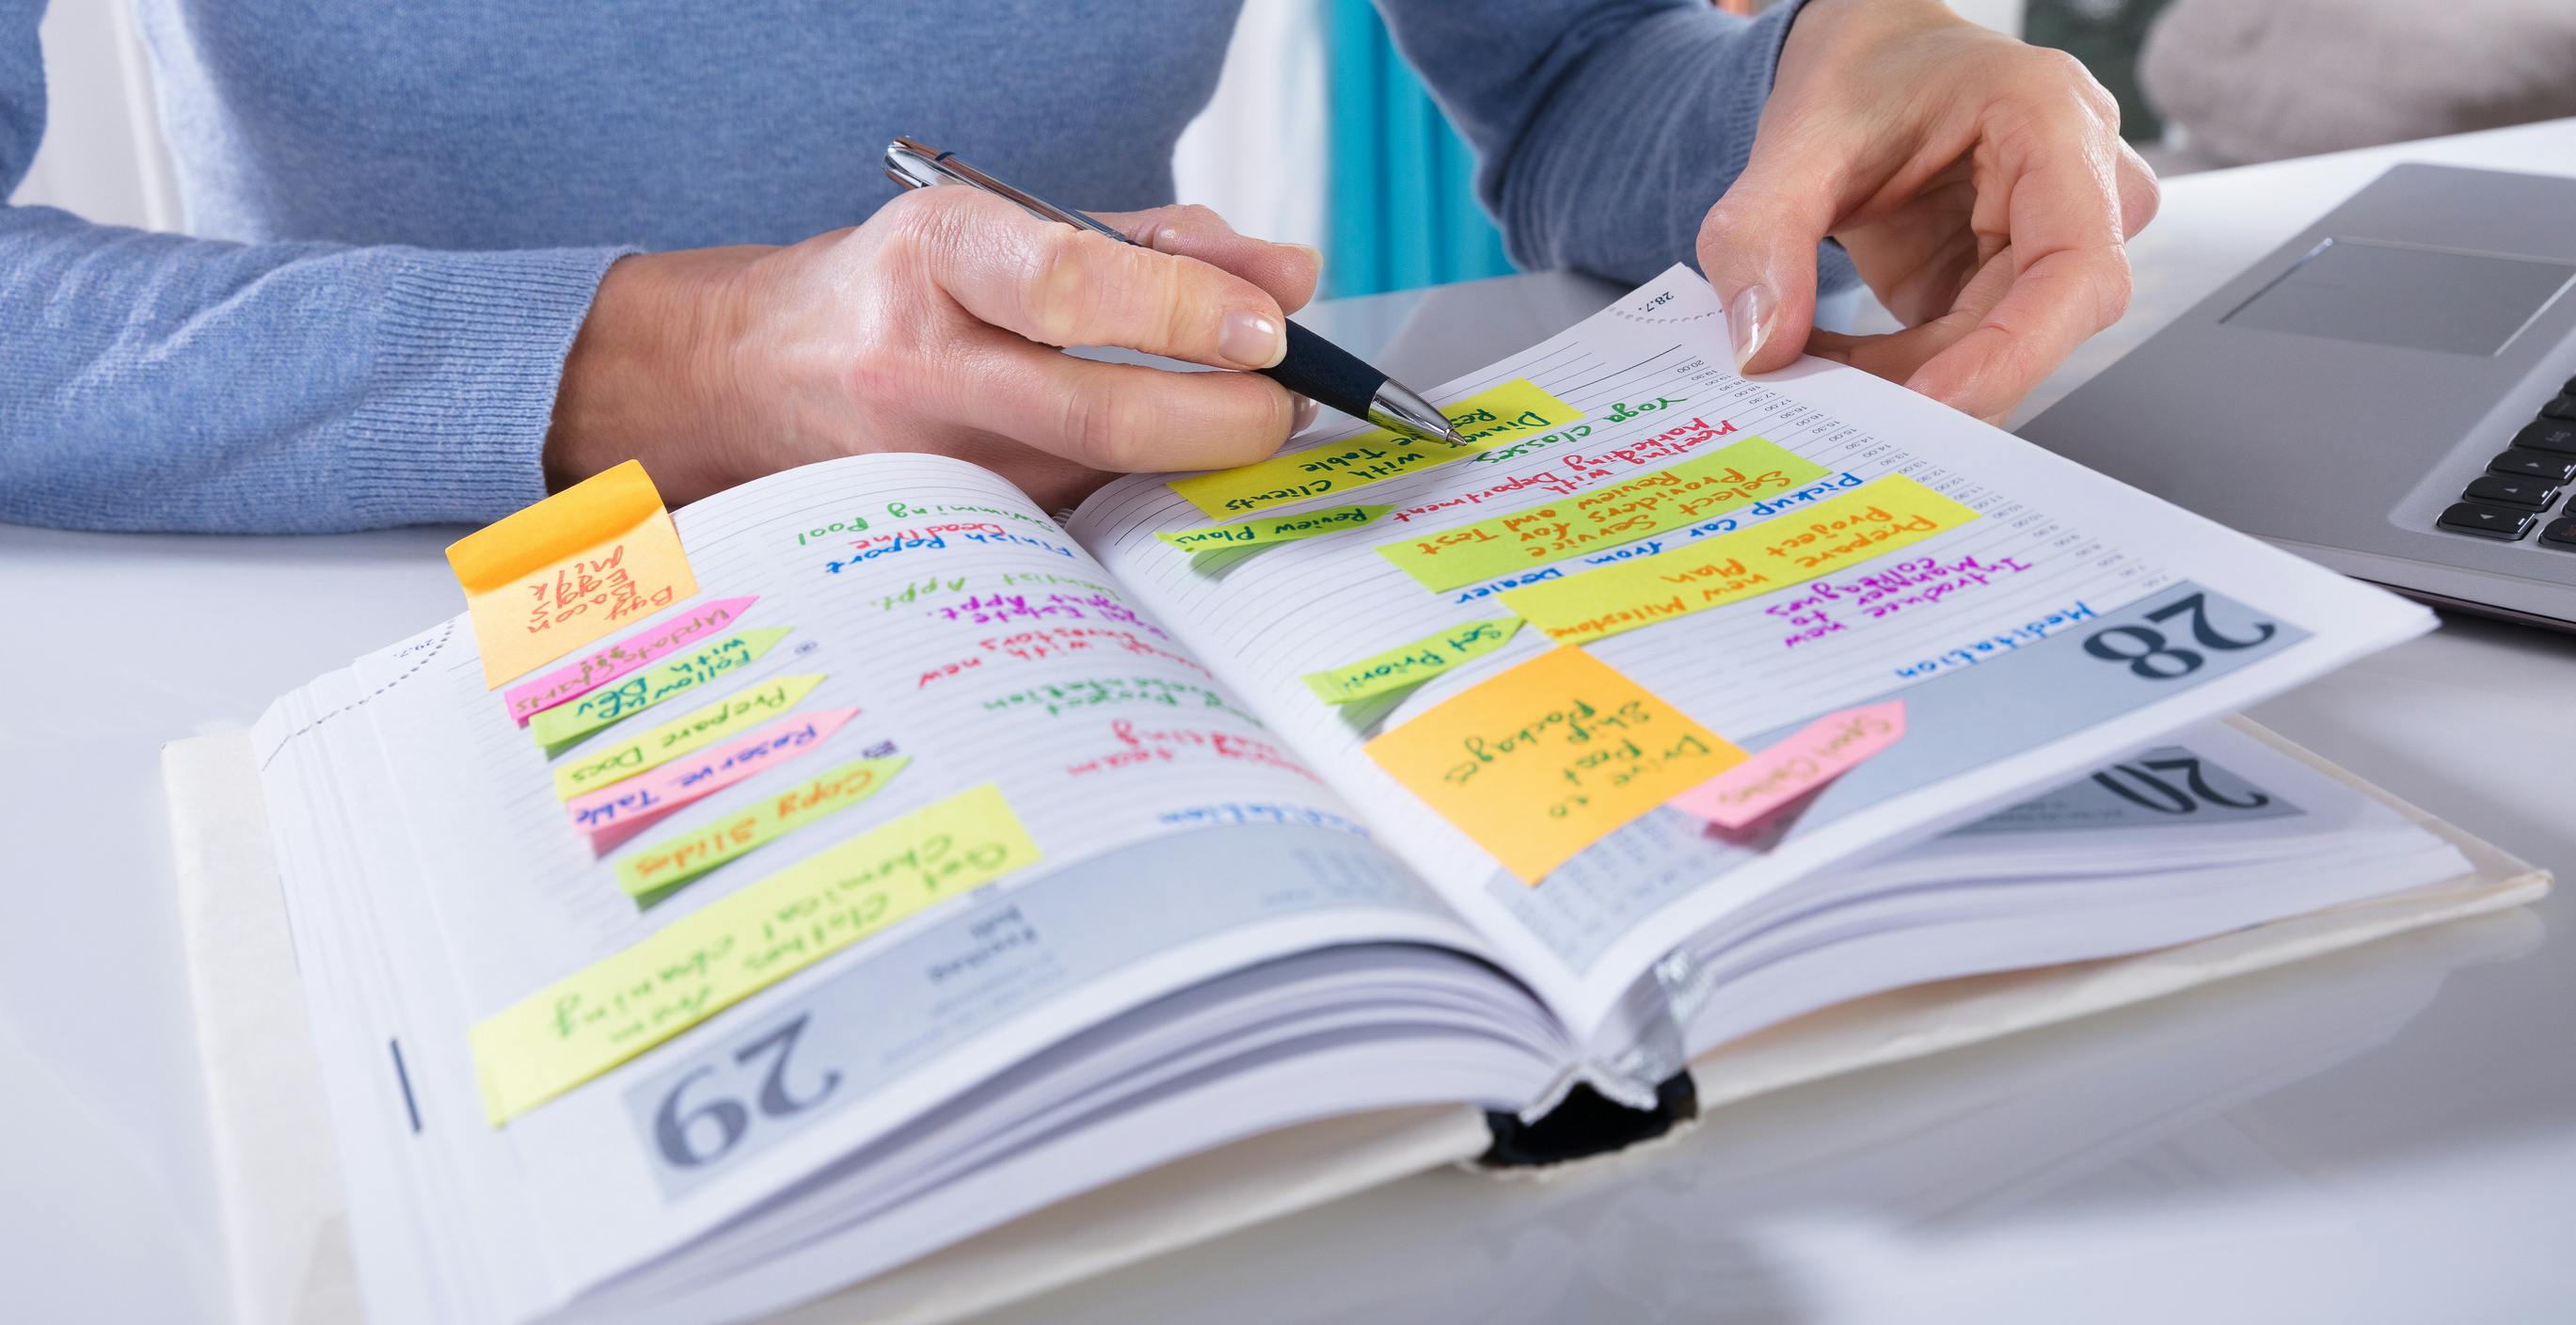 28
Meditation
Introduce new
Manager to
colleagues
Prepare new Milestone
Project Plan
Pickup Car from Dealer
Select Service
Providers for
Review and Test
Meeting with
Marketing Department
Yoga Classes
Dinner with Clients
Table
28.7.
7.00
8.00
9.00
10.00
11.00
12.00
13.00
14.00
15.00
17.00
20.00
Drive to
Post
Ship
Packages
Set Priorit
Review Plans
20
29
Freitag
Juli
team
Investors with new
Estate
Appt.
Appt.
Finish Report
Deadline
Swimming Pool
Get Clothes from
Chemical cleaning
Copy Slides
Reserve Table
Prepare Docs
Follow up
with DEV
Update
Buy
Bacon
Eggs
Milk
29.7.